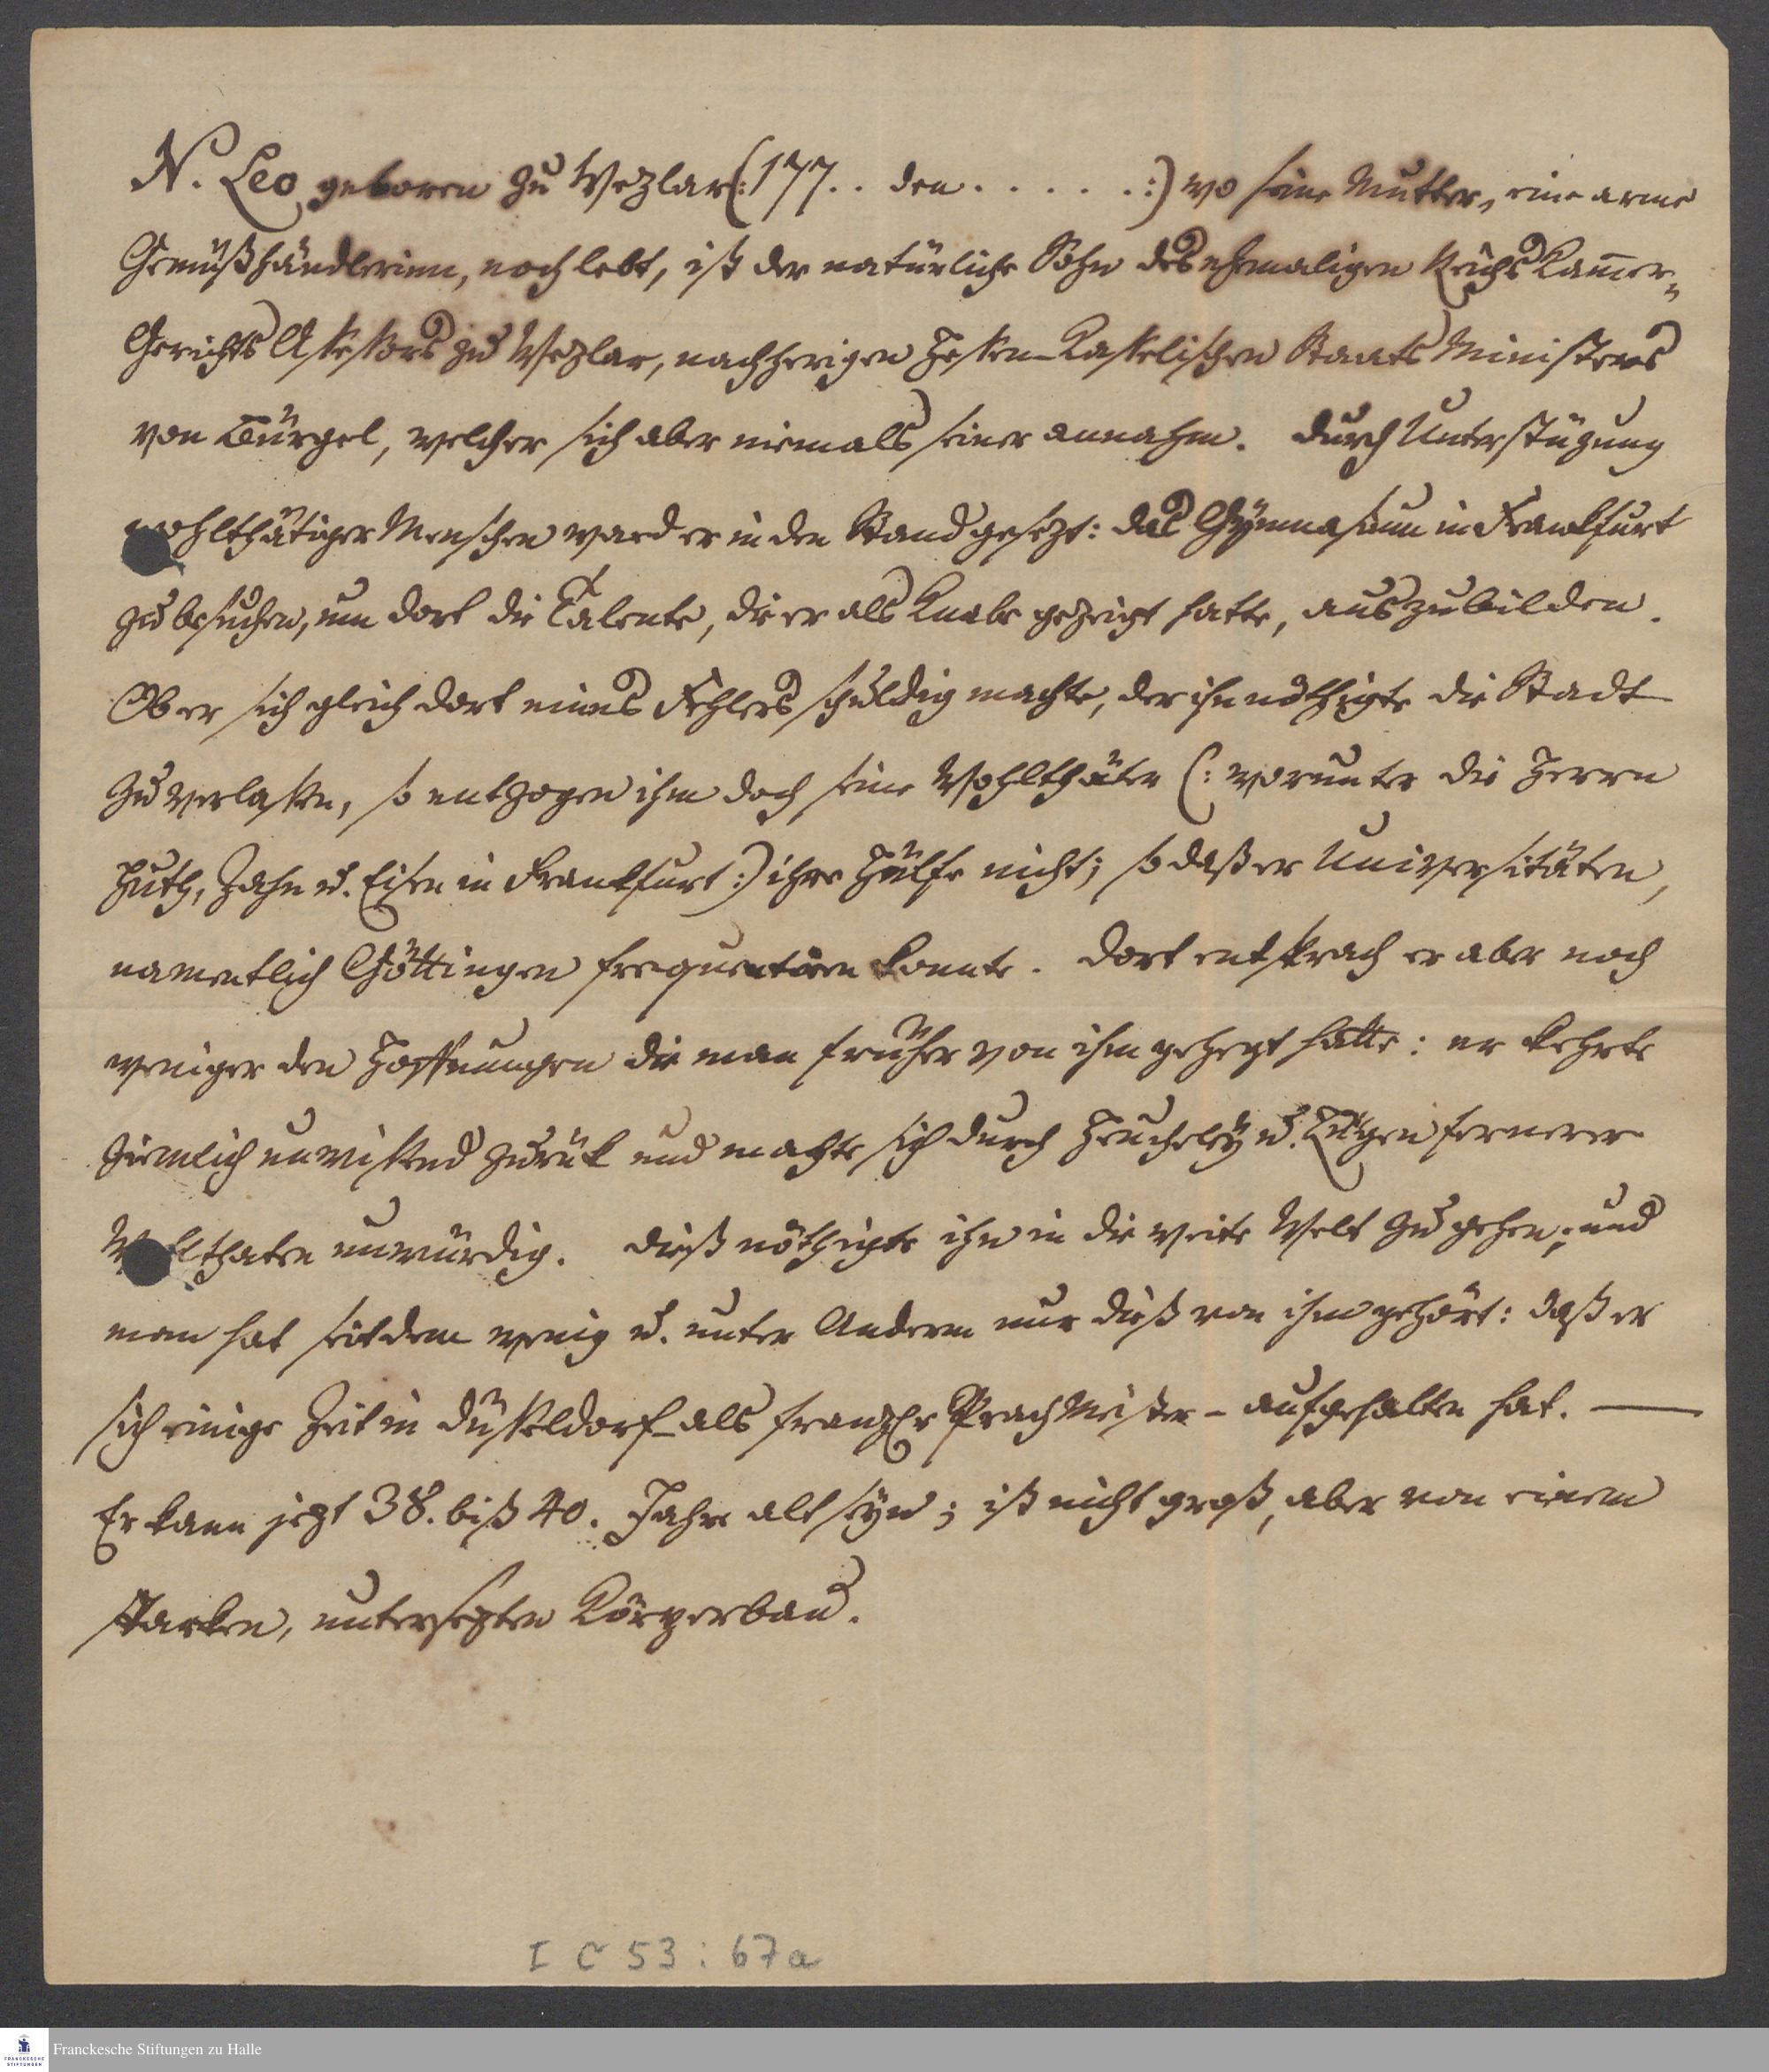 N. Leo geboren zu Wezlar (: 177. . den . . . . . . :) wo seine Mutter, eine arme
Gemüßhändlerinn, noch lebt, ist der natürliche Sohn des ehemaligen ReichsKam̄er„
Gerichts Assessors zu Wezlar, nachherigen Hessen-Casselischen Staats Ministers
von Bürgel, welcher sich aber niemals seiner annahm. Durch Unterstüzung
wohlthätiger Menschen ward er in den Stand gesezt: das Gymnasium in Frankfurt
zu besuchen, um dort die Talente, die er als Knabe gezeigt hatte, auszubilden.
Ob er sich gleich dort eines Fehlers schuldig machte, der ihn nöthigte die Stadt
zu verlassen, so entzogen ihm doch seine Wohlthäter (: worunter die Herrn
Huth, Jahn u. Eisen in Frankfurt :) ihre Hülfe nicht; so daß er Universitäten,
namentlich Göttingen frequentiren konnte. Dort entsprach er aber noch
weniger den Hoffnungen die man früher von ihm gehegt hatte: er kehrte
ziemlich unwissend zurük und machte sich durch Heucheley u. Lügen fernerer
Wohlthaten unwürdig. Dieß nöthigte ihn in die weite Welt zu gehen; und
man hat seitdem wenig u. unter Anderm nur dieß von ihm gehört: daß er
sich einige Zeit in Düsseldorf – als französ. SprachMeister – aufgehalten hat. —
Er kann jezt 38. biß 40. Jahre alt seyn; ist nicht groß, aber von einem
starken, untersezten Körperbau.
I C 53 : 67a
Franckesche Stiftungen zu Halle
FRANCKESCHE
STIFTUNGEN